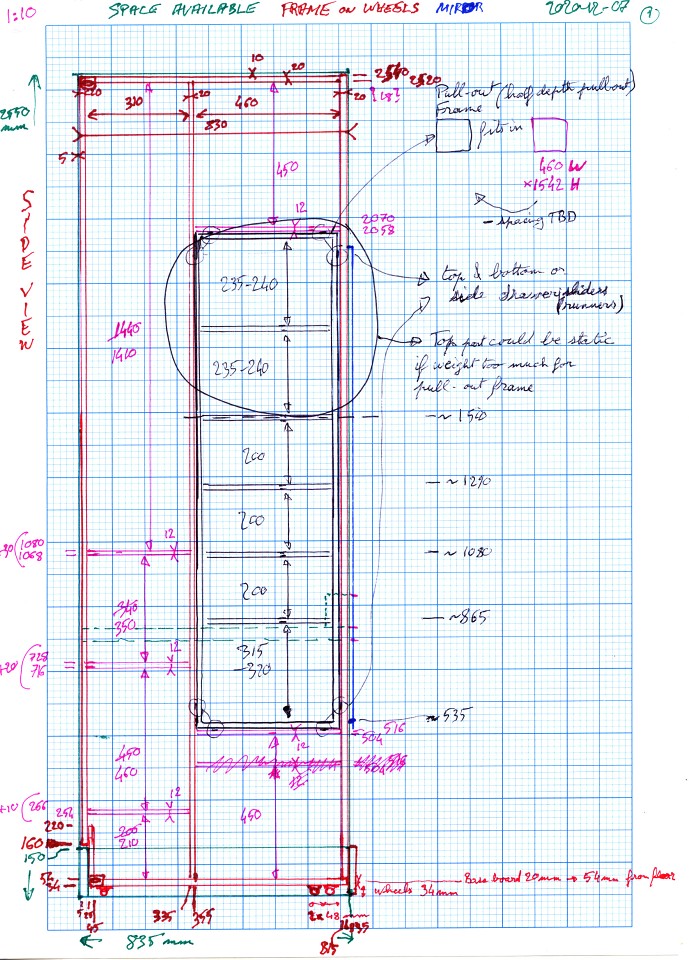 1:10 SPACE AVAILABLE FRAME ON WHEELS MIRROR 2020-12-07 1
10
20
2540 2520
2550
mm
20
20
20
310
460
830
5
Pull-out (half depth pull out)
Frame
fits in
460 W
×1542 H
- spacing TBD
450
12
2070
2058
SIDE VIEW
235-240
top & bottom or
side drawer sliders
(runners)
1440
1410
235-240
Top part could be static
if weight too much for
pull-out frame
- ~ 1540
200
- ~ 1290
200
12
1080
1068
- ~ 1080
200
340
350
- ~865
12
728
716
315
-320
~ 535
516
504
12
450
460
12
266
254
450
200
210
220
160
150
54
34
Base board 20mm → 54mm from floor
wheels 34mm
335
355
2x48
45
835 mm
815